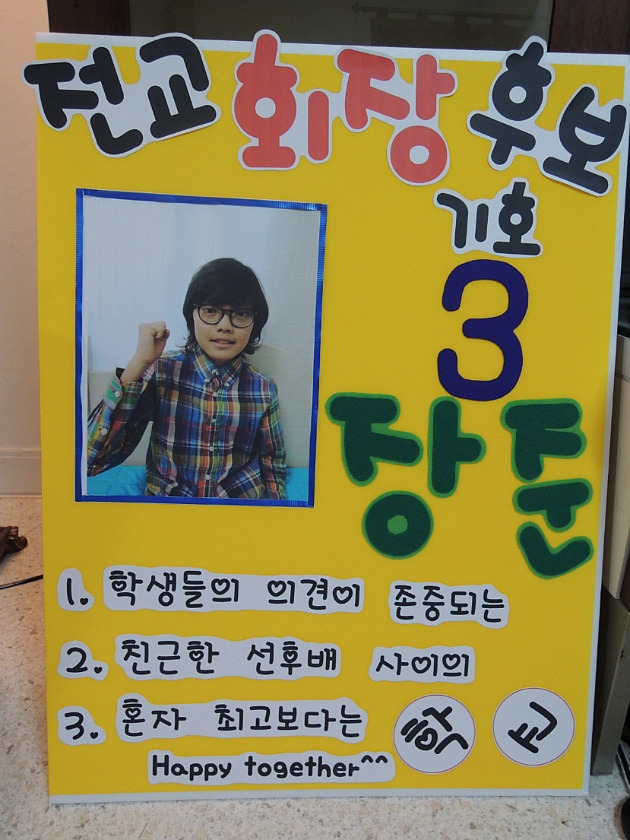 전교 회장 후보
기호
3
장준
1. 학생들의 의견이 존중되는
2. 친근한 선후배 사이의
3. 혼자 최고보다는
Happy together^^
학교